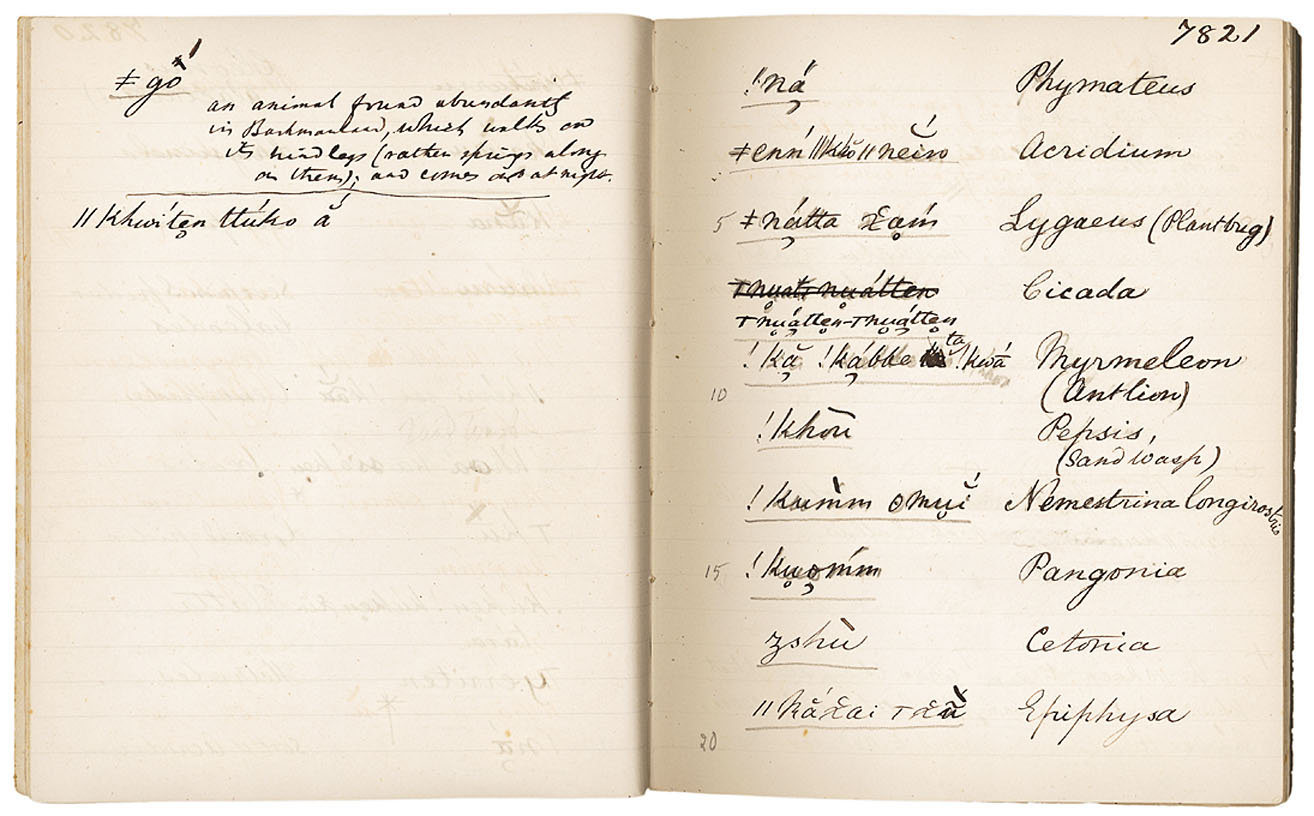 ǂ gó
an animal found abundantly
in Bushmanland, which walks on
its hind legs (rather springs along
on them); and comes out at night.
ǁ Khwíten ttúko ắ
7821
! ná̦ Phymateus
ǂ enń ǁ ǁ nĕíṅ Acridium
5 ǂ ná̦tta Lygaeus (Plantbug)
Cicada
ꞇ nu̥á̦tte̥n-ꞇnu̥á̦tte̥n
! kă̦ ! ká̦bbe ta ! kwā́ Myrmeleon
10 (Antlion)
! khōū Pepsis,
(Sand Wasp)
! Nemestrina longirostris
15 ! Pangonia
zshù Cetonia
ǁ Epiphysa
20